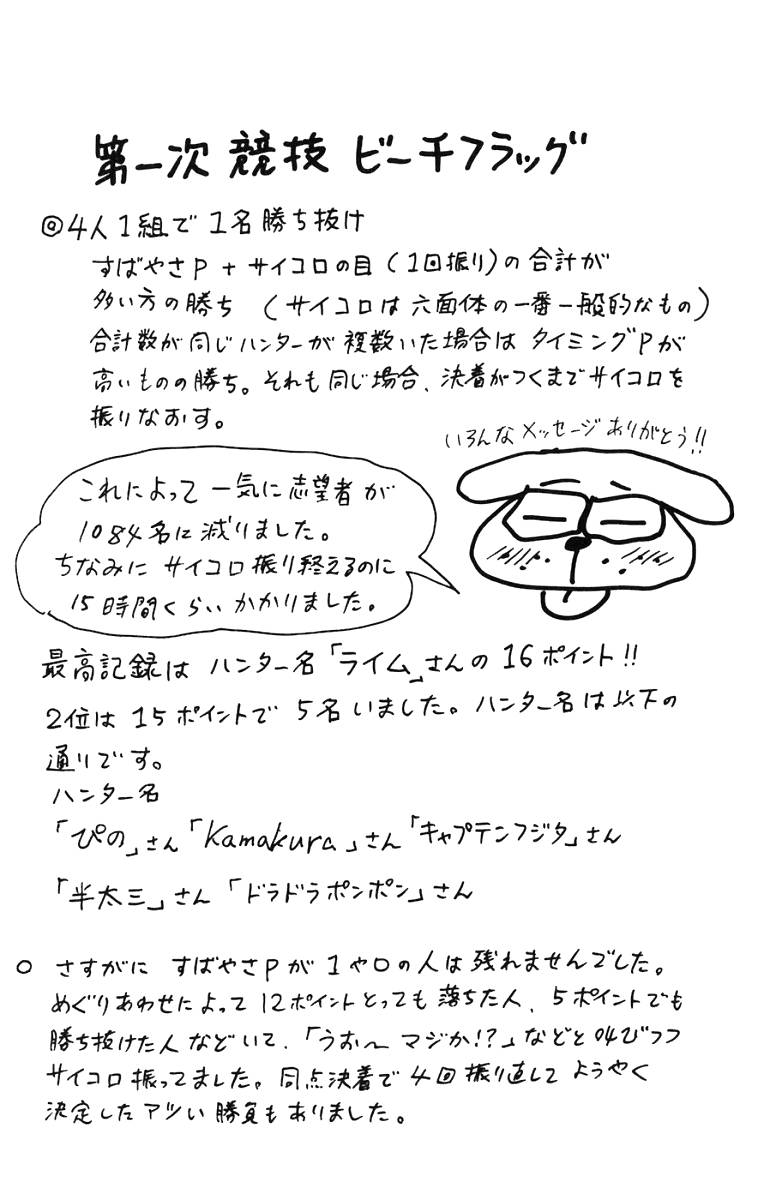 第一次 競技 ビーチフラッグ
◎4人1組で 1名勝ち抜け
すばやさP + サイコロの目 (1回振り)の合計が
多い方の勝ち (サイコロは 六面体の一番一般的なもの)
合計数が同じハンターが複数いた場合は タイミングPが
高いものの勝ち。それも同じ場合、決着がつくまでサイコロを
振りなおす。
いろんなメッセージありがとう!!
これによって 一気に志望者が
1084名に減りました。
ちなみに サイコロ振り終えるのに
15時間くらいかかりました。
最高記録は ハンター名「ライム」さんの 16ポイント!!
2位は 15ポイントで 5名いました。ハンター名は以下の
通りです。
ハンター名
「ぴの」さん「Kamakura」さん「キャプテンフジタ」さん
「半太三」さん 「ドラドラポンポン」さん
○ さすがに すばやさPが 1や0の人は 残れませんでした。
めぐりあわせによって 12ポイントとっても 落ちた人、5ポイントでも
勝ち抜けた人などいて、「うお〜 マジか!?」などと叫びつつ
サイコロ振ってました。同点決着で 4回振り直して ようやく
決定したアツい勝負もありました。